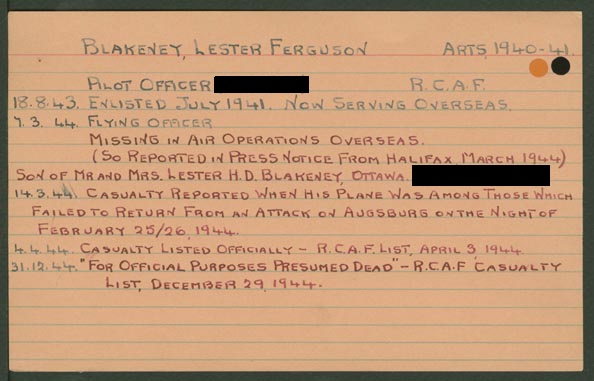 BLAKENEY, LESTER FERGUSON ARTS, 1940-41.
PILOT OFFICER R.C.A.F.
18.8.43. ENLISTED JULY 1941. NOW SERVING OVERSEAS.
7.3.44. FLYING OFFICER
MISSING IN AIR OPERATIONS OVERSEAS.
(SO REPORTED IN PRESS NOTICE FROM HALIFAX, MARCH 1944)
SON OF MR AND MRS. LESTER H.D. BLAKENEY, OTTAWA.
14.3.44. CASUALTY REPORTED WHEN HIS PLANE WAS AMONG THOSE WHICH
FAILED TO RETURN FROM AN ATTACK ON AUGSBURG ON THE NIGHT OF
FEBRUARY 25/26, 1944.
4.4.44. CASUALTY LISTED OFFICIALLY - R.C.A.F. LIST, APRIL 3, 1944.
31.12.44. "FOR OFFICIAL PURPOSES PRESUMED DEAD" - R.C.A.F CASUALTY
LIST, DECEMBER 29, 1944.